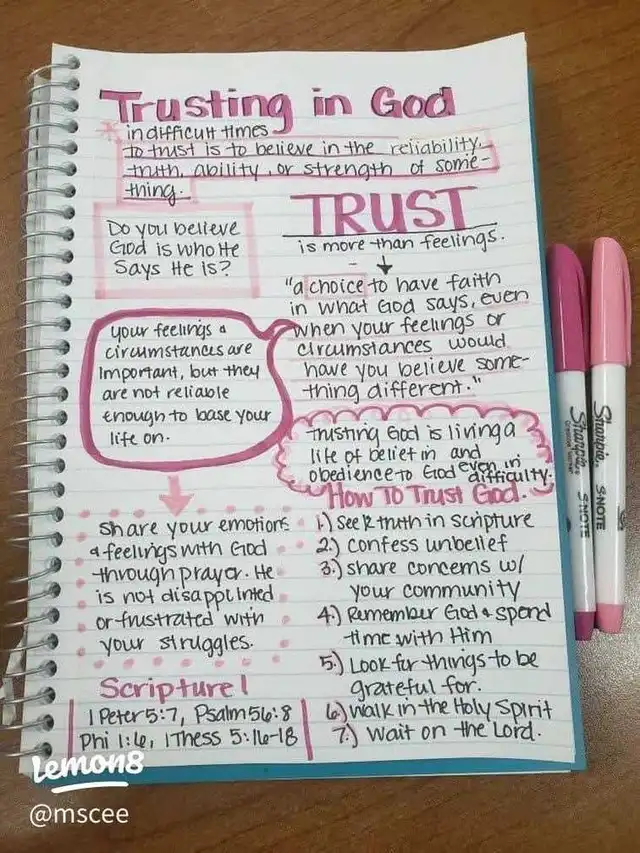 Trusting in God
in difficult times
to trust is to believe in the reliability,
truth, ability, or strength of some-
thing.
Do you believe
God is who He
Says He is?
TRUST
is more than feelings.
"a choice to have faith
in what God says, even
when your feelings or
circumstances would
have you believe some-
thing different."
your feelings &
circumstances are
important, but they
are not reliable
enough to base your
life on.
trusting God is living a
life of belief in and
obedience to God even in
difficulty.
share your emotions
& feelings with God
through prayer. He
is not disappointed
or frustrated with
your struggles.
How To Trust God.
1.) Seek truth in scripture
2.) confess unbelief
3.) share concerns w/
your community
4.) Remember God & spend
time with Him
5.) Look for things to be
grateful for.
6.) walk in the Holy Spirit
7.) wait on the Lord.
Scripture!
1 Peter 5:7, Psalm 56:8
Phi 1:6, 1 Thess 5:16-18
Sharpie
S·NOTE
Sharpie
S·NOTE
Lemon8
@mscee